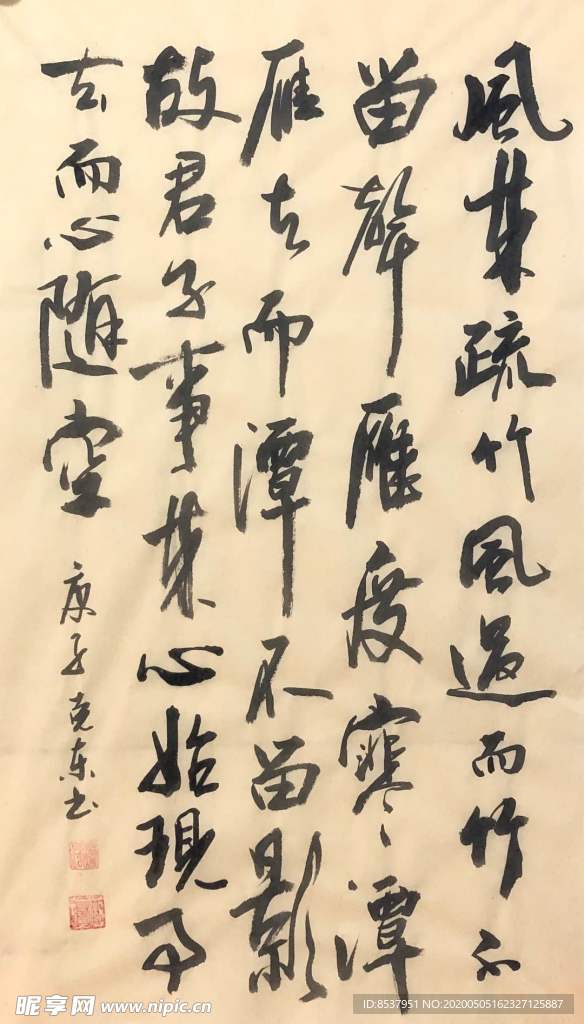 風来疏竹風過而竹不
留聲雁度寒潭
雁去而潭不留影
故君子事来心始現事
去而心随空
庚子克東书
昵享网 www.nipic.cn
ID:8537951 NO:20200505162327125887